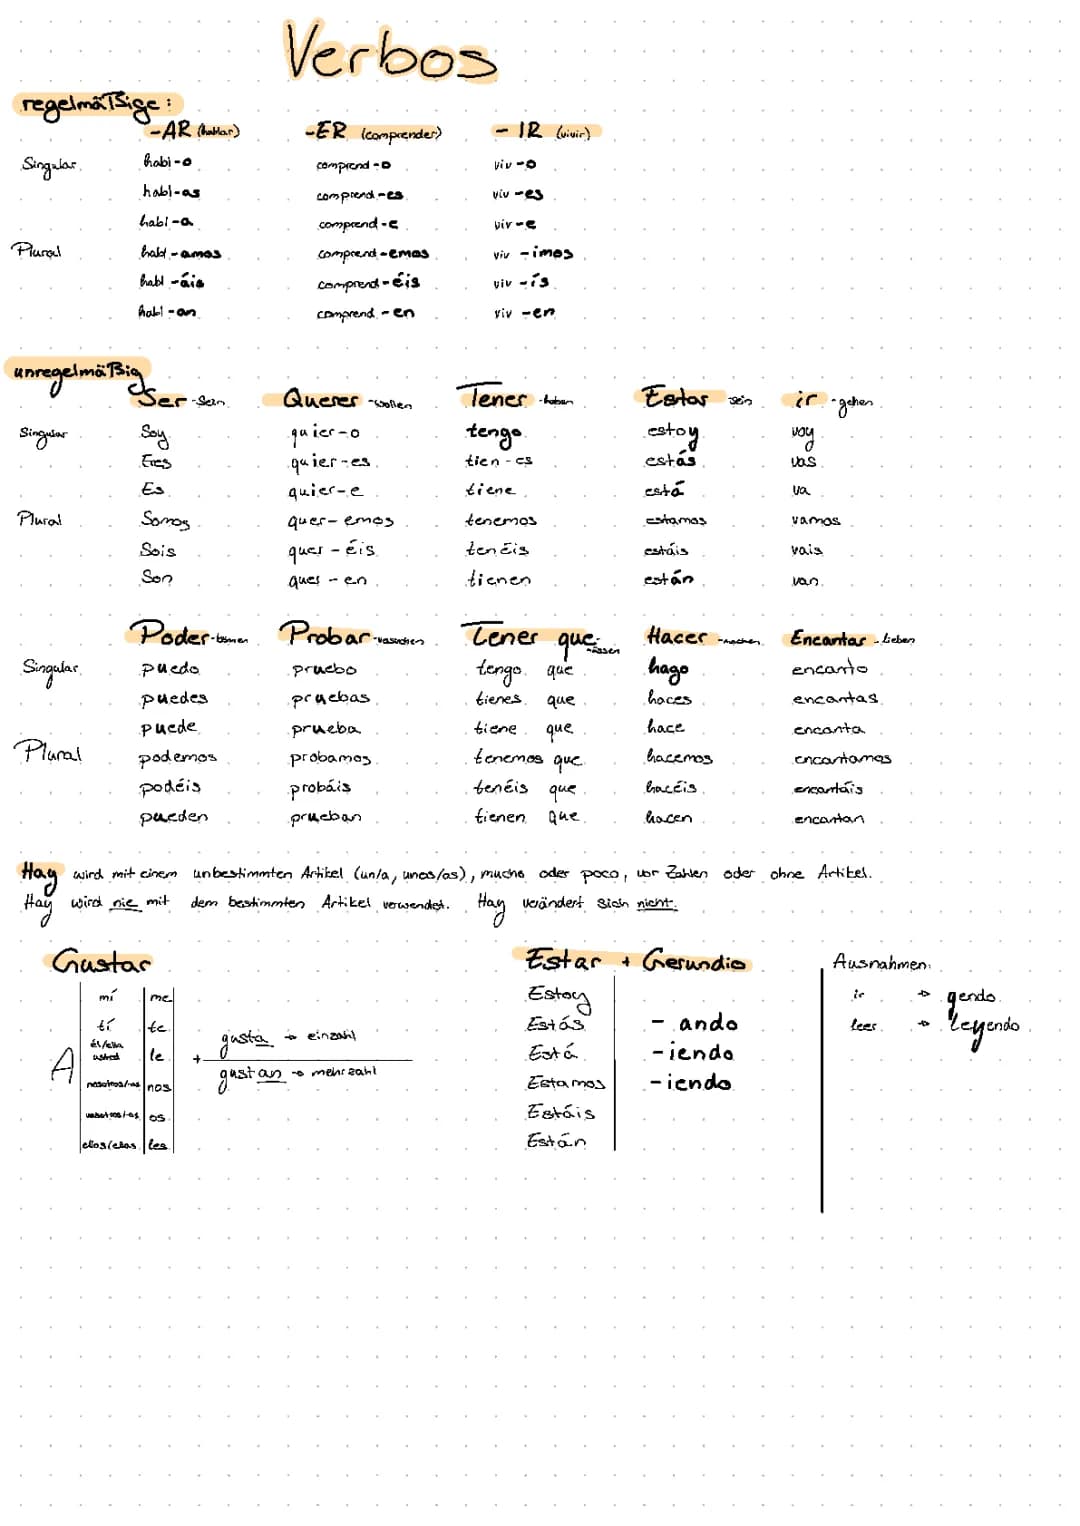 Verbos
regelmäßige:
-AR (hablar) -ER (comprender) - IR (vivir)
Singular habl-o comprend-o viv-o
habl-as comprend-es viv-es
habl-a comprend-e viv-e
Plural habl-amos comprend-emos viv-imos
habl-áis comprend-éis viv-ís
habl-an comprend-en viv-en
unregelmäßig
Ser -Sein Querer -wollen Tener -haben Estar sein ir -gehen
Singular Soy quier-o tengo estoy voy
Eres quier-es tien-es estás vas
Es quier-e tiene está va
Plural Somos quer-emos tenemos estamos vamos
Sois quer-éis tenéis estáis vais
Son quer-en tienen están van
Poder -können Probar -versuchen Tener que -müssen Hacer -machen Encantar -lieben
Singular puedo pruebo tengo que hago encanto
puedes pruebas tienes que haces encantas
puede prueba tiene que hace encanta
Plural podemos probamos tenemos que hacemos encantamos
podéis probáis tenéis que hacéis encantáis
pueden prueban tienen que hacen encantan
Hay wird mit einem unbestimmten Artikel (un/a, unos/as), mucho oder poco, vor Zahlen oder ohne Artikel.
Hay wird nie mit dem bestimmten Artikel verwendet. Hay verändert sich nicht.
Gustar Estar + Gerundio Ausnahmen:
mí me Estoy ir → yendo
tí te Estás - ando leer → leyendo
A él/ella usted le + gusta → einzahl Está -iendo
nosotros/-as nos gustan → mehrzahl Estamos -iendo
vosotros/-as os Estáis
ellos/ellas les Están